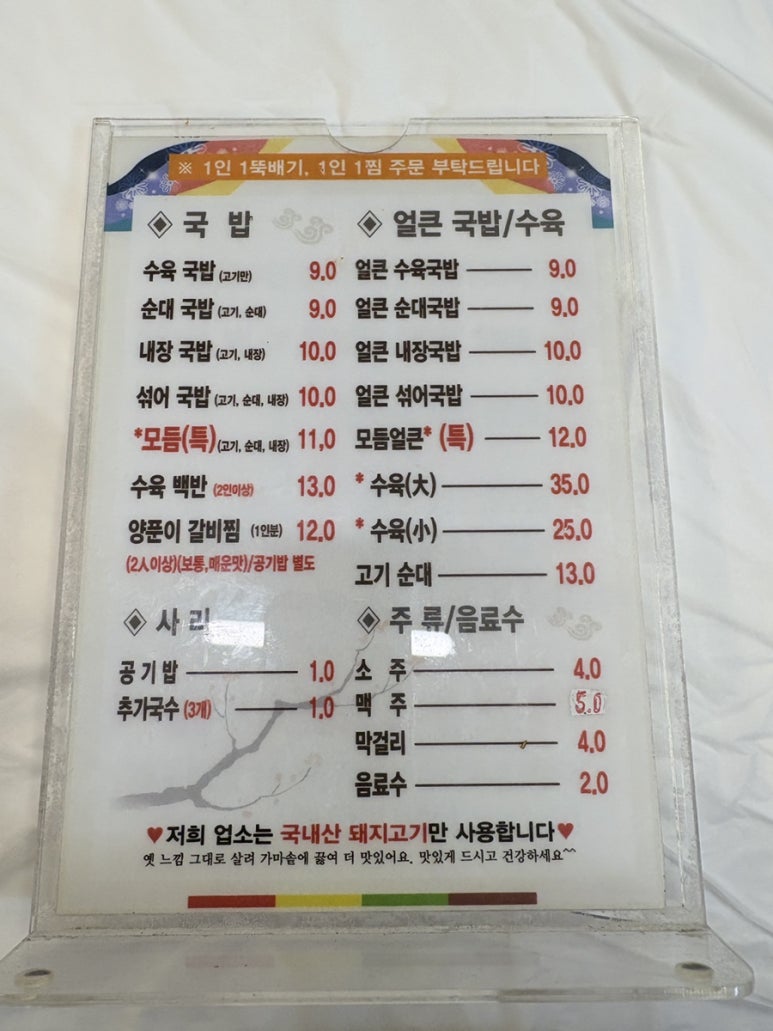 ※ 1인 1뚝배기, 1인 1찜 주문 부탁드립니다
◈ 국 밥
수육 국밥 (고기만) 9.0
순대 국밥 (고기, 순대) 9.0
내장 국밥 (고기, 내장) 10.0
섞어 국밥 (고기, 순대, 내장) 10.0
*모듬(특) (고기, 순대, 내장) 11,0
수육 백반 (2인이상) 13.0
양푼이 갈비찜 (1인분) 12.0
(2人이상)(보통,매운맛)/공기밥 별도
◈ 사 리
공 기 밥 1.0
추가국수 (3개) 1.0
◈ 얼큰 국밥/수육
얼큰 수육국밥 9.0
얼큰 순대국밥 9.0
얼큰 내장국밥 10.0
얼큰 섞어국밥 10.0
모듬얼큰* (특) 12.0
* 수육(大) 35.0
* 수육(小) 25.0
고기 순대 13.0
◈ 주 류/음료수
소 주 4.0
맥 주 5.0
막걸리 4.0
음료수 2.0
♥저희 업소는 국내산 돼지고기만 사용합니다♥
옛 느낌 그대로 살려 가마솥에 끓여 더 맛있어요. 맛있게 드시고 건강하세요^^